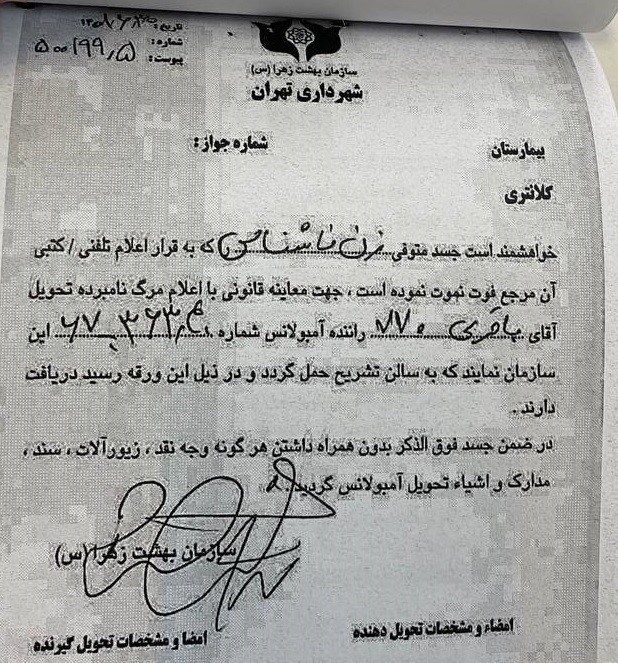 تاریخ:
شماره: ۵۰۰۱۹۹٫۵
پیوست:
سازمان بهشت زهرا (س)
شهرداری تهران
بیمارستان شماره جواز:
کلانتری
خواهشمند است جسد متوفی زن ناشناس را که به قرار اعلام تلفنی / کتبی
آن مرجع فوت نموت نموده است ، جهت معاینه قانونی با اعلام مرگ نامبرده تحویل
آقای باقری ۸۷۰ راننده آمبولانس شماره این
سازمان نمایند که به سالن تشریح حمل گردد و در ذیل این ورقه رسید دریافت
دارند .
در ضمن جسد فوق الذکر بدون همراه داشتن هر گونه وجه نقد ، زیورآلات ، سند ،
مدارک و اشیاء تحویل آمبولانس گردید .
سازمان بهشت زهرا (س)
امضاء و مشخصات تحویل دهنده
امضا و مشخصات تحویل گیرنده